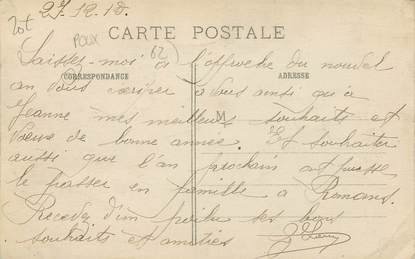 27.12.18.
CARTE POSTALE
POUX
Laissez-moi à l'approche du nouvel
CORRESPONDANCE ADRESSE
an vous à vous ainsi qu'a
Jeanne mes meilleurs souhaits et
voeux de bonne année. Et souhaiter
aussi que l'an prochain puisse
le passer en famille à Romans.
Recevez d'un poilu ses bons
souhaits et amitiés